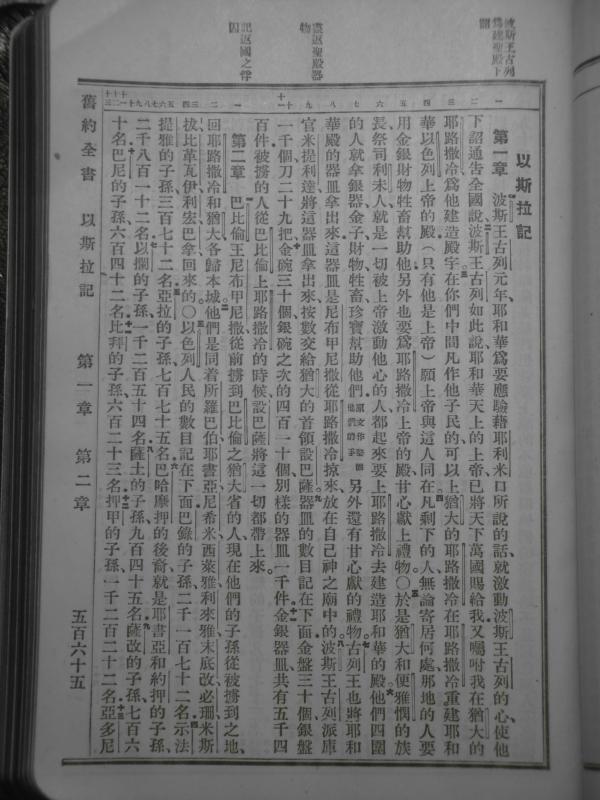 波斯王古列
爲建聖殿下
詔
盡返聖殿器
物
記返國之俘
囚
以斯拉記
第一章 波斯王古列元年耶和華爲要應驗藉耶利米口所說的話就激動波斯王古列的心使他
下詔通告全國說波斯王古列如此說耶和華天上的上帝已將天下萬國賜給我又囑咐我在猶大的
耶路撒冷爲他建造殿宇在你們中間凡作他子民的可以上猶大的耶路撒冷在耶路撒冷重建耶和
華以色列上帝的殿(只有他是上帝)願上帝與這人同在凡剩下的人無論寄居何處那地的人要
用金銀財物牲畜幫助他另外也要爲耶路撒冷上帝的殿甘心獻上禮物○於是猶大和便雅憫的族
長祭司利未人就是一切被上帝激動他心的人都起來要上耶路撒冷去建造耶和華的殿他們四圍
的人就拿銀器金子財物牲畜珍寶幫助他們原文作堅固他們的手另外還有甘心獻的禮物古列王也將耶和
華殿的器皿拿出來這器皿是尼布甲尼撒從耶路撒冷掠來放在自己神之廟中的波斯王古列派庫
官米提利達將這器皿拿出來按數交給猶大的首領設巴薩器皿的數目記在下面金盤三十個銀盤
一千個刀二十九把金碗三十個銀碗之次的四百一十個別樣的器皿一千件金銀器皿共有五千四
百件被擄的人從巴比倫上耶路撒冷的時候設巴薩將這一切都帶上來
第二章 巴比倫王尼布甲尼撒從前擄到巴比倫之猶大省的人現在他們的子孫從被擄到之地
回耶路撒冷和猶大各歸本城他們是同着所羅巴伯耶書亞尼希米西萊雅利來雅末底改必珊米斯
拔比革瓦伊利宏巴拿回來的○以色列人民的數目記在下面巴錄的子孫二千一百七十二名示法
提雅的子孫三百七十二名亞拉的子孫七百七十五名巴哈摩押的後裔就是耶書亞和約押的子孫
二千八百一十二名以攔的子孫一千二百五十四名薩土的子孫九百四十五名薩改的子孫七百六
十名巴尼的子孫六百四十二名比拜的子孫六百二十三名押甲的子孫一千二百二十二名亞多尼
舊約全書 以斯拉記 第一章 第二章 五百六十五